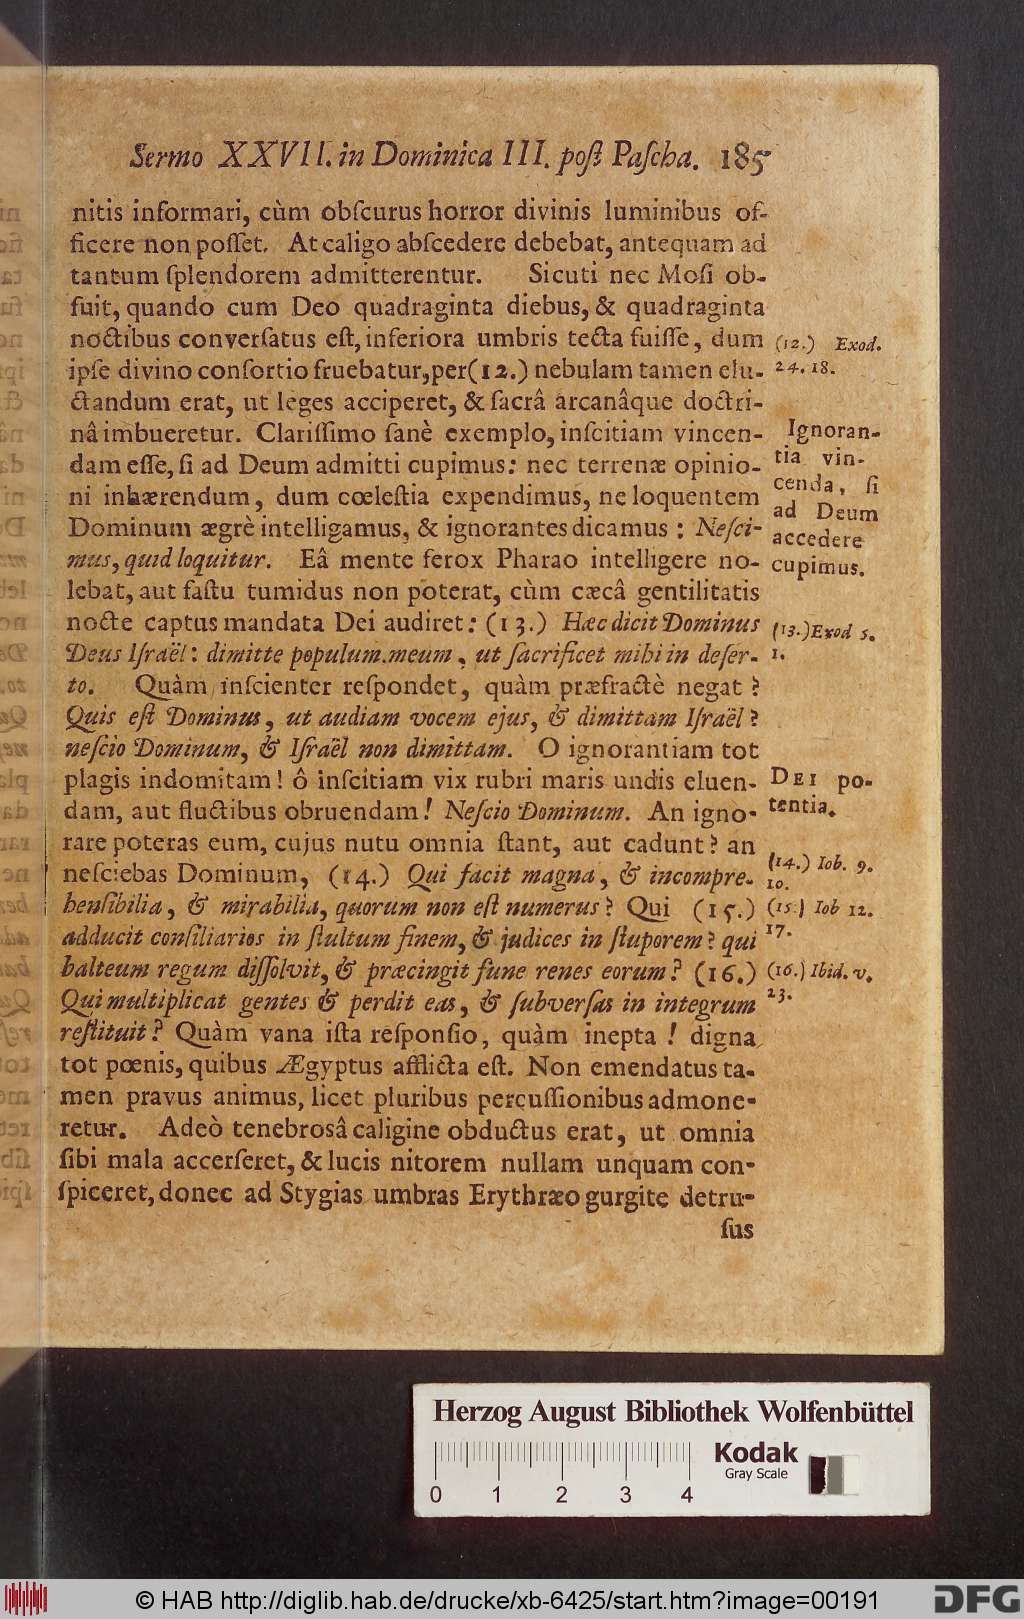 Sermo XXVII. in Dominica III. poſt Paſcha. 185
nitis informari, cùm obſcurus horror divinis luminibus of-
ficere non poſſet. At caligo abſcedere debebat, antequam ad
tantum ſplendorem admitterentur. Sicuti nec Moſi ob-
fuit, quando cum Deo quadraginta diebus, & quadraginta
noctibus converſatus eſt, inferiora umbris tecta fuiſſe, dum
ipſe divino conſortio fruebatur, per (12.) nebulam tamen elu-
ctandum erat, ut leges acciperet, & ſacrâ arcanâque doctri-
nâ imbueretur. Clariſſimo ſanè exemplo, inſcitiam vincen-
dam eſſe, ſi ad Deum admitti cupimus: nec terrenæ opinio-
ni inhærendum, dum cœleſtia expendimus, ne loquentem
Dominum ægrè intelligamus, & ignorantes dicamus: Neſci-
mus, quid loquitur. Eâ mente ferox Pharao intelligere no-
lebat, aut faſtu tumidus non poterat, cùm cæcâ gentilitatis
nocte captus mandata Dei audiret: (13.) Hæc dicit Dominus
Deus Iſraël: dimitte populum meum, ut ſacrificet mihi in deſer-
to. Quàm inſcienter reſpondet, quàm præfractè negat?
Quis eſt Dominus, ut audiam vocem ejus, & dimittam Iſraël?
neſcio Dominum, & Iſraël non dimittam. O ignorantiam tot
plagis indomitam! ô inſcitiam vix rubri maris undis eluen-
dam, aut fluctibus obruendam! Neſcio Dominum. An igno-
rare poteras eum, cujus nutu omnia ſtant, aut cadunt? an
neſciebas Dominum, (14.) Qui facit magna, & incompre-
henſibilia, & mirabilia, quorum non eſt numerus? Qui (15.)
adducit conſiliarios in ſtultum finem, & judices in ſtuporem? qui
balteum regum diſſolvit, & præcingit fune renes eorum? (16.)
Qui multiplicat gentes & perdit eas, & ſubverſas in integrum
reſtituit? Quàm vana iſta reſponſio, quàm inepta! digna
tot pœnis, quibus Ægyptus afflicta eſt. Non emendatus ta-
men pravus animus, licet pluribus percuſſionibus admone-
retur. Adeò tenebrosâ caligine obductus erat, ut omnia
ſibi mala accerſeret, & lucis nitorem nullam unquam con-
ſpiceret, donec ad Stygias umbras Erythræo gurgite detru-
ſus
(12.) Exod.
24. 18.
Ignoran-
tia vin-
cenda, ſi
ad Deum
accedere
cupimus.
(13.) Exod 5.
1.
DEI po-
tentia.
(14.) Iob. 9.
10.
(15.) Iob 12.
17.
(16.) Ibid. v.
23.
Herzog August Bibliothek Wolfenbüttel
Kodak
Gray Scale
0 1 2 3 4
© HAB http://diglib.hab.de/drucke/xb-6425/start.htm?image=00191
DFG